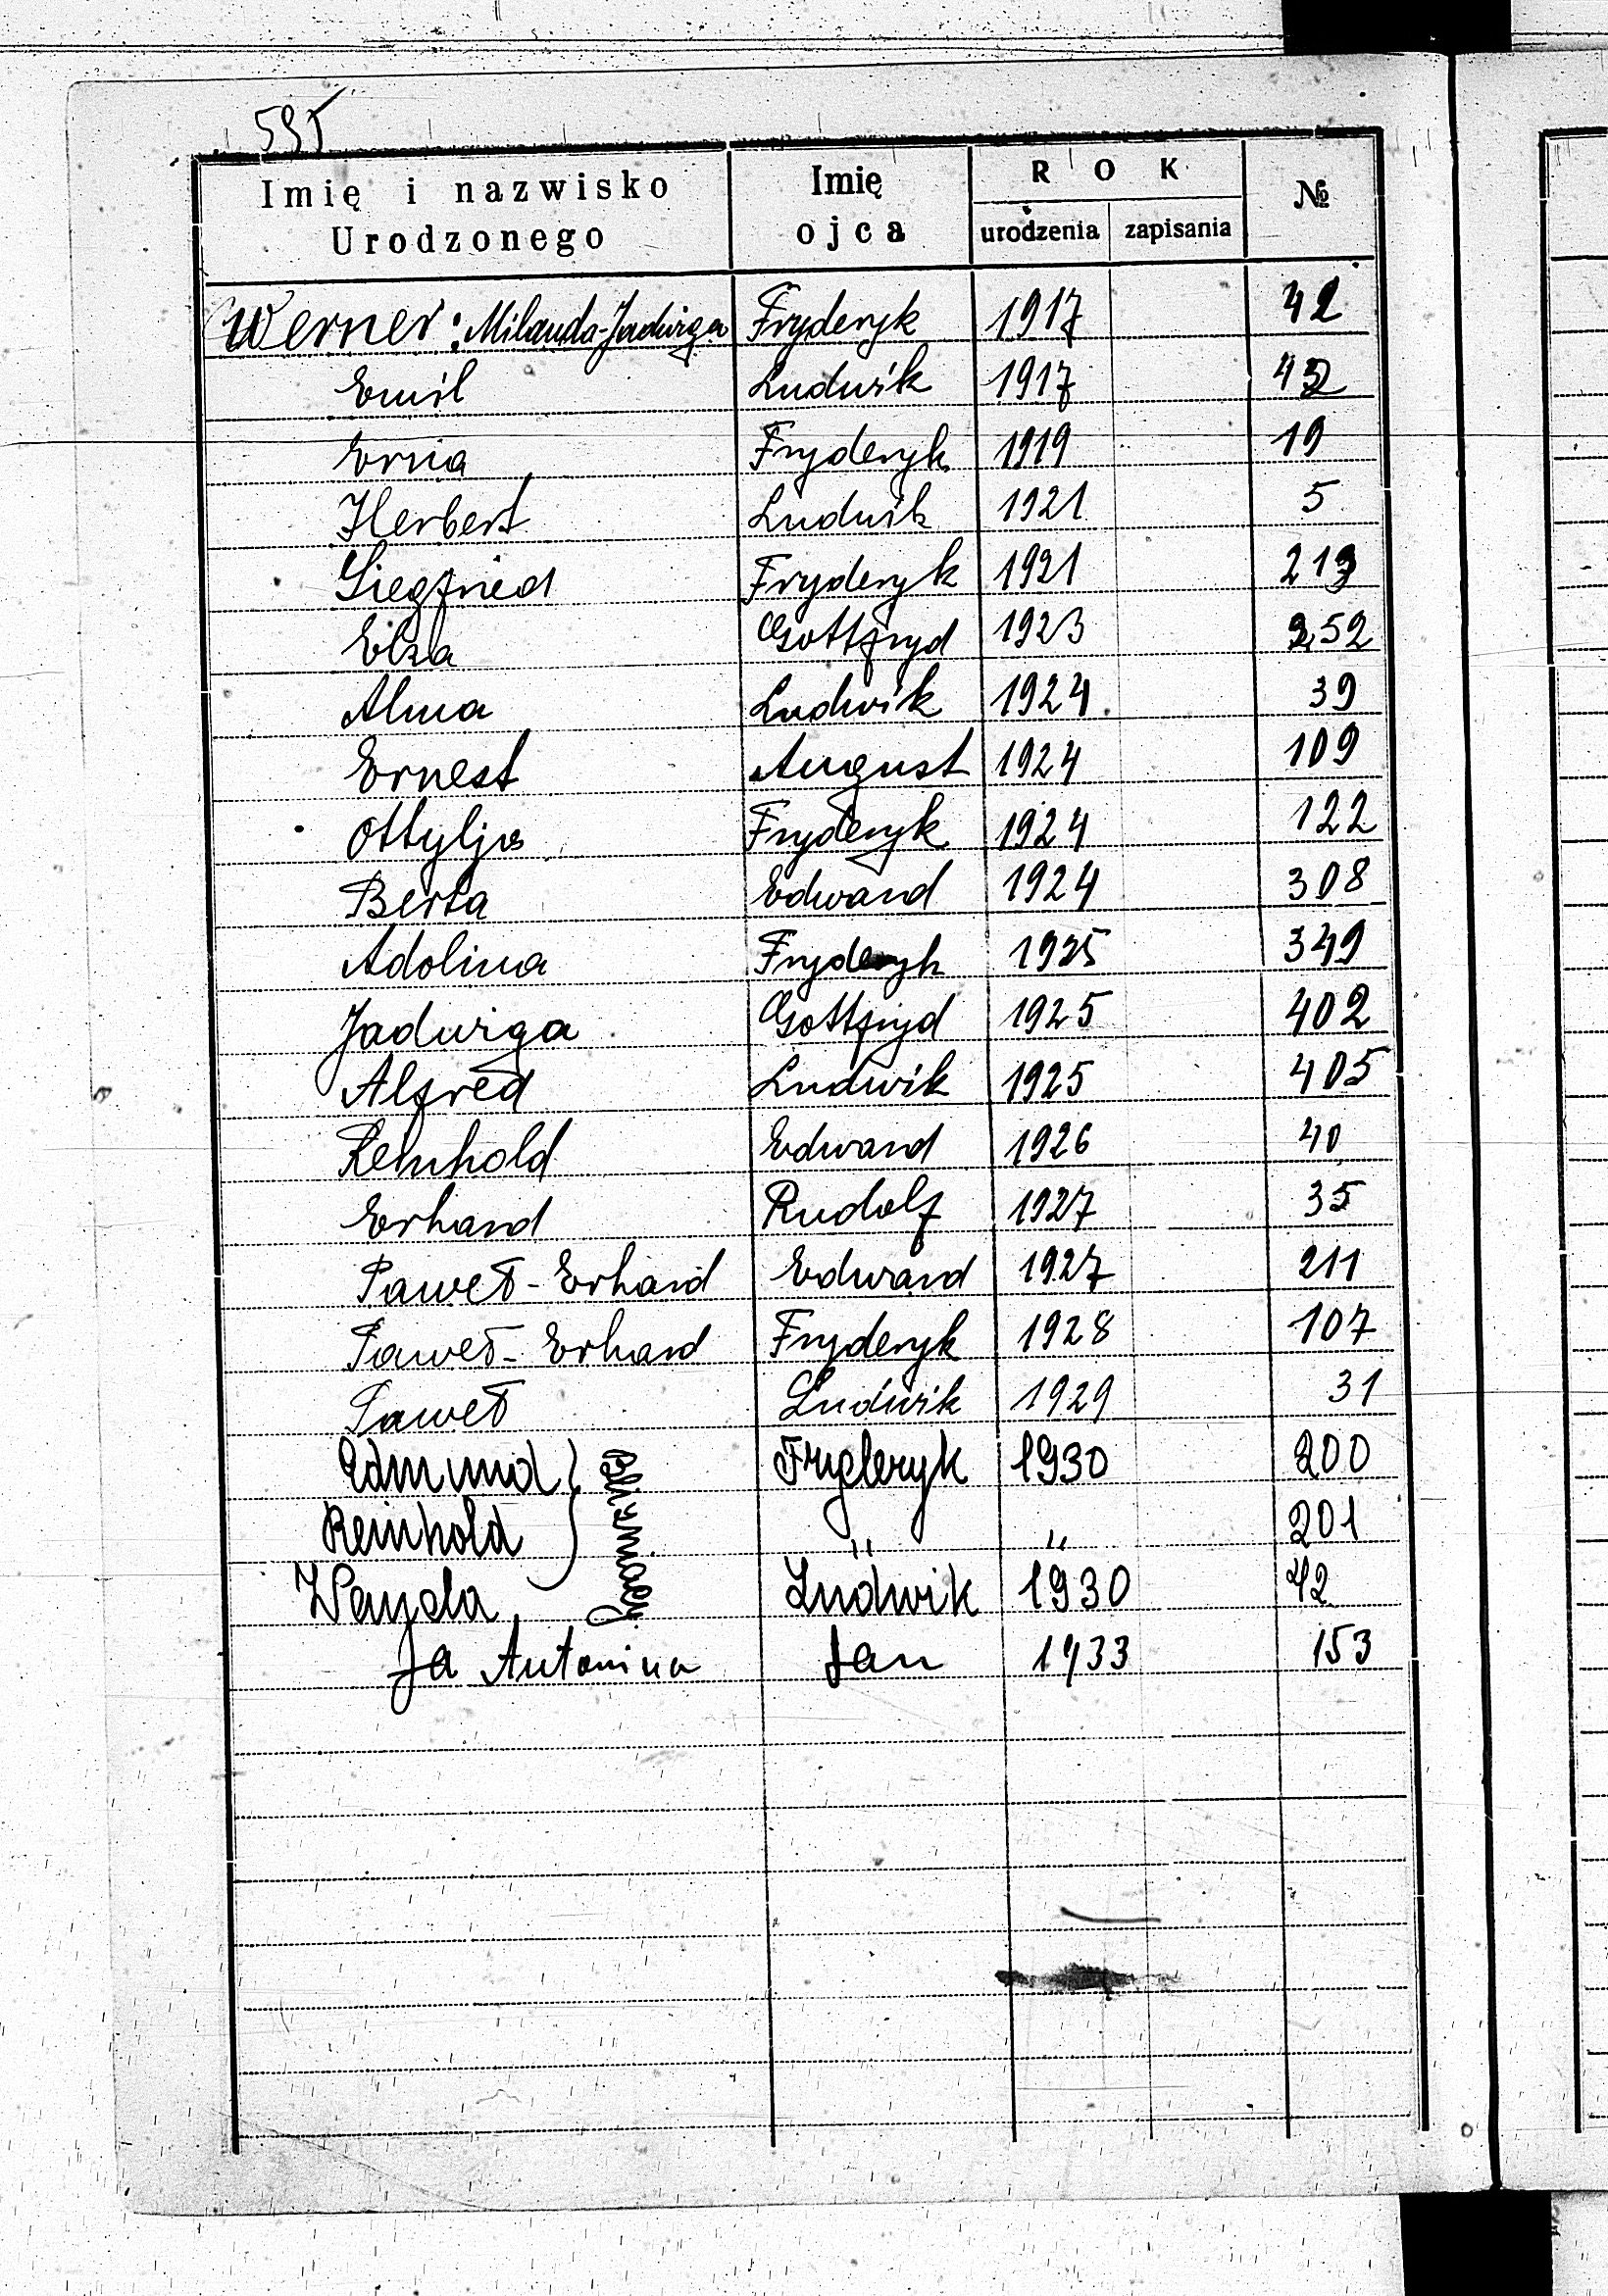 595
Imię i nazwisko Urodzonego | Imię ojca | ROK urodzenia | zapisania | №
Werner: Milanda-Jadwiga | Fryderyk | 1917 | 42
Emil | Ludwik | 1917 | 42
Erna | Fryderyk | 1919 | 19
Herbert | Ludwik | 1921 | 5
Siegfried | Fryderyk | 1921 | 213
Elza | Gottfryd | 1923 | 252
Alma | Ludwik | 1924 | 39
Ernest | August | 1924 | 109
Ottylja | Fryderyk | 1924 | 122
Berta | Edward | 1924 | 308
Adolina | Fryderyk | 1925 | 349
Jadwiga | Gottfryd | 1925 | 402
Alfred | Ludwik | 1925 | 405
Reinhold | Edward | 1926 | 40
Erhard | Rudolf | 1927 | 35
Paweł-Erhard | Edward | 1927 | 211
Paweł-Erhard | Fryderyk | 1928 | 107
Paweł | Ludwik | 1929 | 31
Edmund } Bliźniacy | Fryderyk | 1930 | 200
Reinhold | " | " | 201
Wanda | Ludwik | 1930 | 42
Ja Antonina | Jan | 1933 | 153